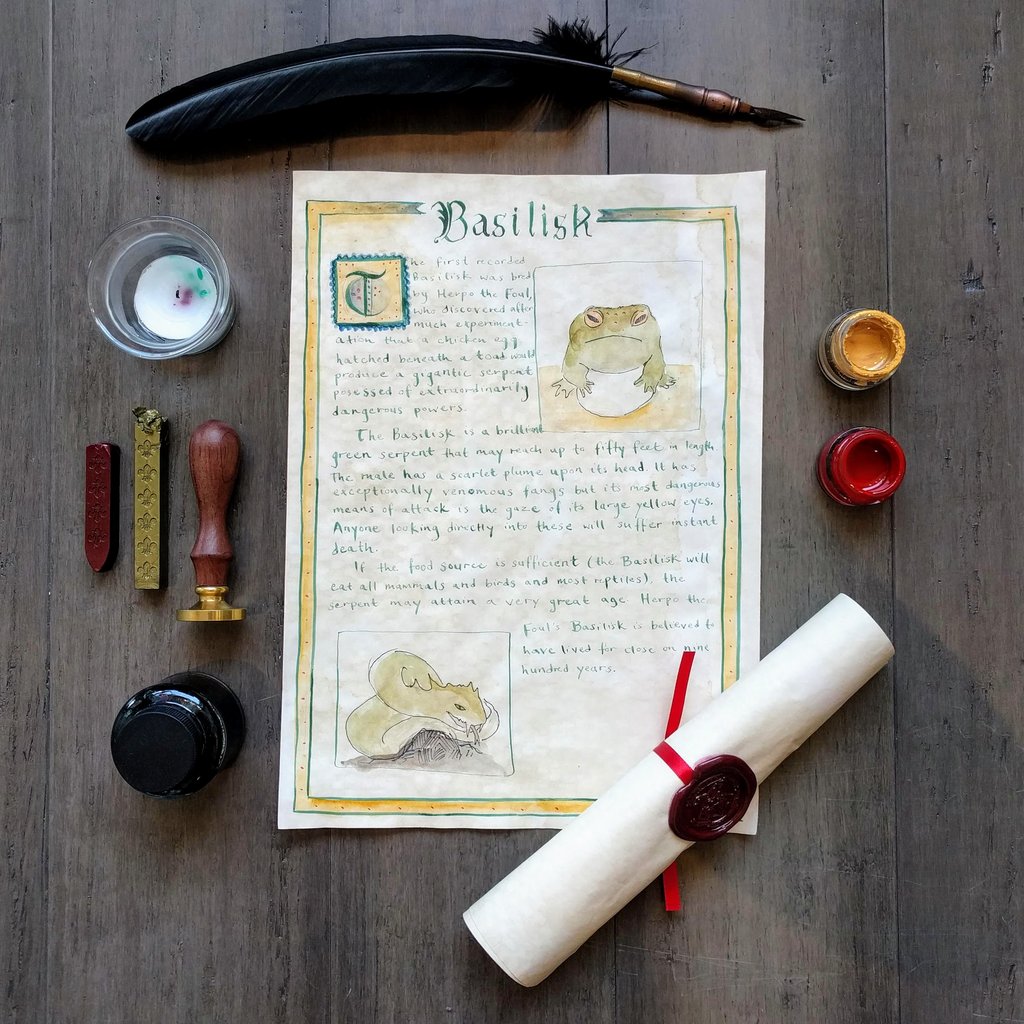 Basilisk
The first recorded
Basilisk was bred
by Herpo the Foul,
who discovered after
much experiment-
ation that a chicken egg
hatched beneath a toad would
produce a gigantic serpent
posessed of extraordinarily
dangerous powers.
The Basilisk is a brilliant
green serpent that may reach up to fifty feet in length.
The male has a scarlet plume upon its head. It has
exceptionally venomous fangs but its most dangerous
means of attack is the gaze of its large yellow eyes.
Anyone looking directly into these will suffer instant
death.
If the food source is sufficient (the Basilisk will
eat all mammals and birds and most reptiles), the
serpent may attain a very great age. Herpo the
Foul's Basilisk is believed to
have lived for close on nine
hundred years.